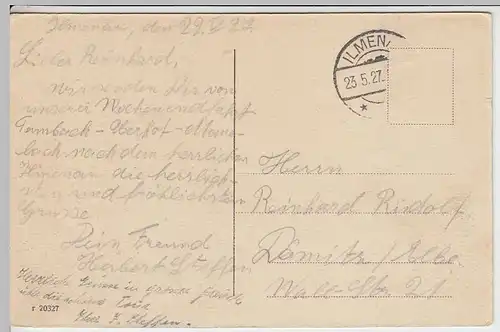 Ilmenau, den 23.V.27
Lieber Reinhard,
wir senden Dir von
unserer Wochenendfahrt
Tambach - Oberhof -
bach nach dem herrlichen
Ilmenau die herzlich-
sten und fröhlichsten
Grüsse
Dein Freund
Herbert Steffen
Herzlich Grüsse in
r 20327
ILMENAU
23.5.27.
Herrn
Reinhard Rudolf
Dömitz / Elbe
Wall-Str. 21